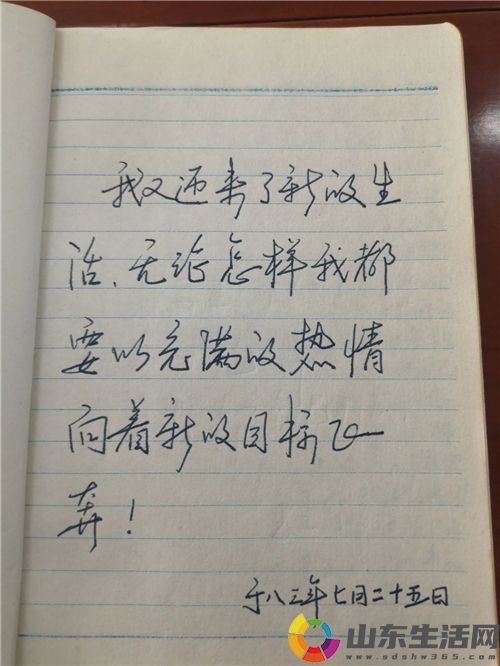 我又迎来了新的生
活、无论怎样我都
要以充满的热情
向着新的目标飞
奔！
于八三年七月二十五日
山东生活网
www.sdshw365.com